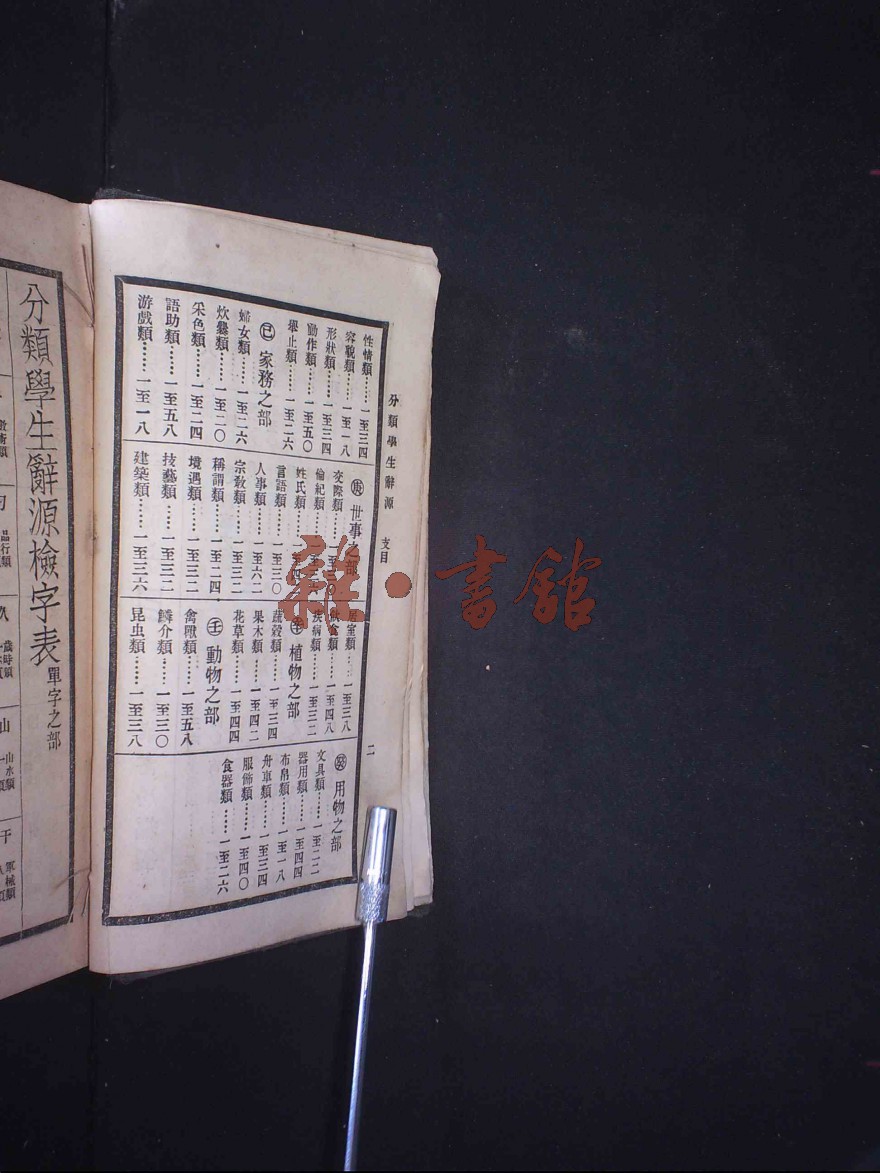 分類學生辭源　支目
二
性情類……一至三四
容貌類……一至一八
形狀類……一至三四
動作類……一至五〇
舉止類……一至二六
己　家務之部
婦女類……一至二六
炊爨類……一至二〇
采色類……一至二四
語助類……一至五八
游戲類……一至一八
庚　世事之部
交際類
倫紀類
姓氏類
言語類……一至三〇
人事類……一至六二
宗教類……一至三二
稱謂類……一至二四
境遇類……一至三二
技藝類……一至三二
建築類……一至三六
居室類……一至三八
飲食類……一至四八
疾病類……一至三二
辛　植物之部
蔬穀類……一至三四
果木類……一至四二
花草類……一至四四
壬　動物之部
禽獸類……一至五八
鱗介類……一至三〇
昆虫類……一至三八
癸　用物之部
文具類……一至二二
器用類……一至四四
布帛類……一至一八
舟車類……一至三四
服飾類……一至四〇
食器類……一至二六
分類學生辭源檢字表　單字之部
山　山水類
干　軍械類
雜·書館